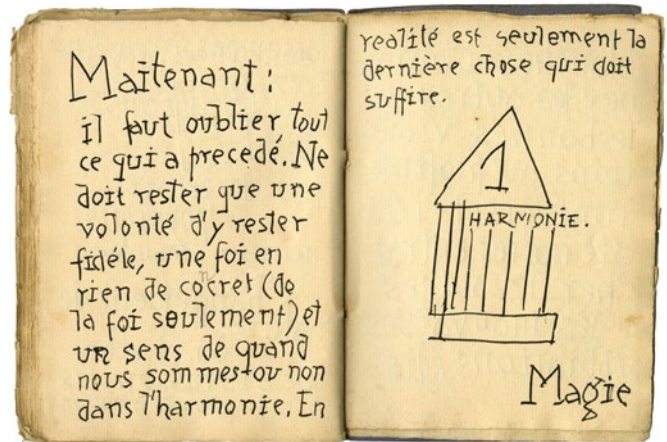 Maitenant:
il faut oublier, tout
ce qui a precedé. Ne
doit rester que une
volonté d'y rester
fidéle, une foi en
rien de cocret (de
la foi seulement) et
un sens de quand
nous sommes ou non
dans l'harmonie. En
realité est seulement la
dernière chose qui doit
suffire.
1
HARMONIE.
Magie